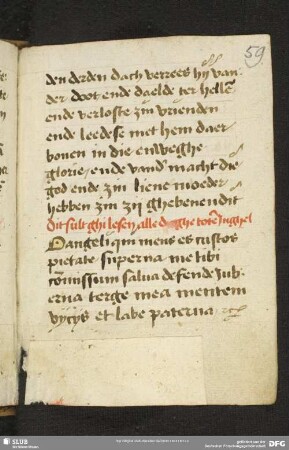 59
den derden dach verrees hy van
der doot ende daelde ter hellē
ende verloste zyn vrienden
ende leedese met hem daer
bouen in die ewighe
glorie, ende vand macht die
god ende zyn lieue moeder
hebben zyn zy ghebenendit
Dit sult ghi lesen alle daghe totē Inghel
O angeli qui meus es custos
pietate superna me tibi
cōmissum salua defende gub
erna terge mea mentem
vycys et labe paterna
SLUB
DFG